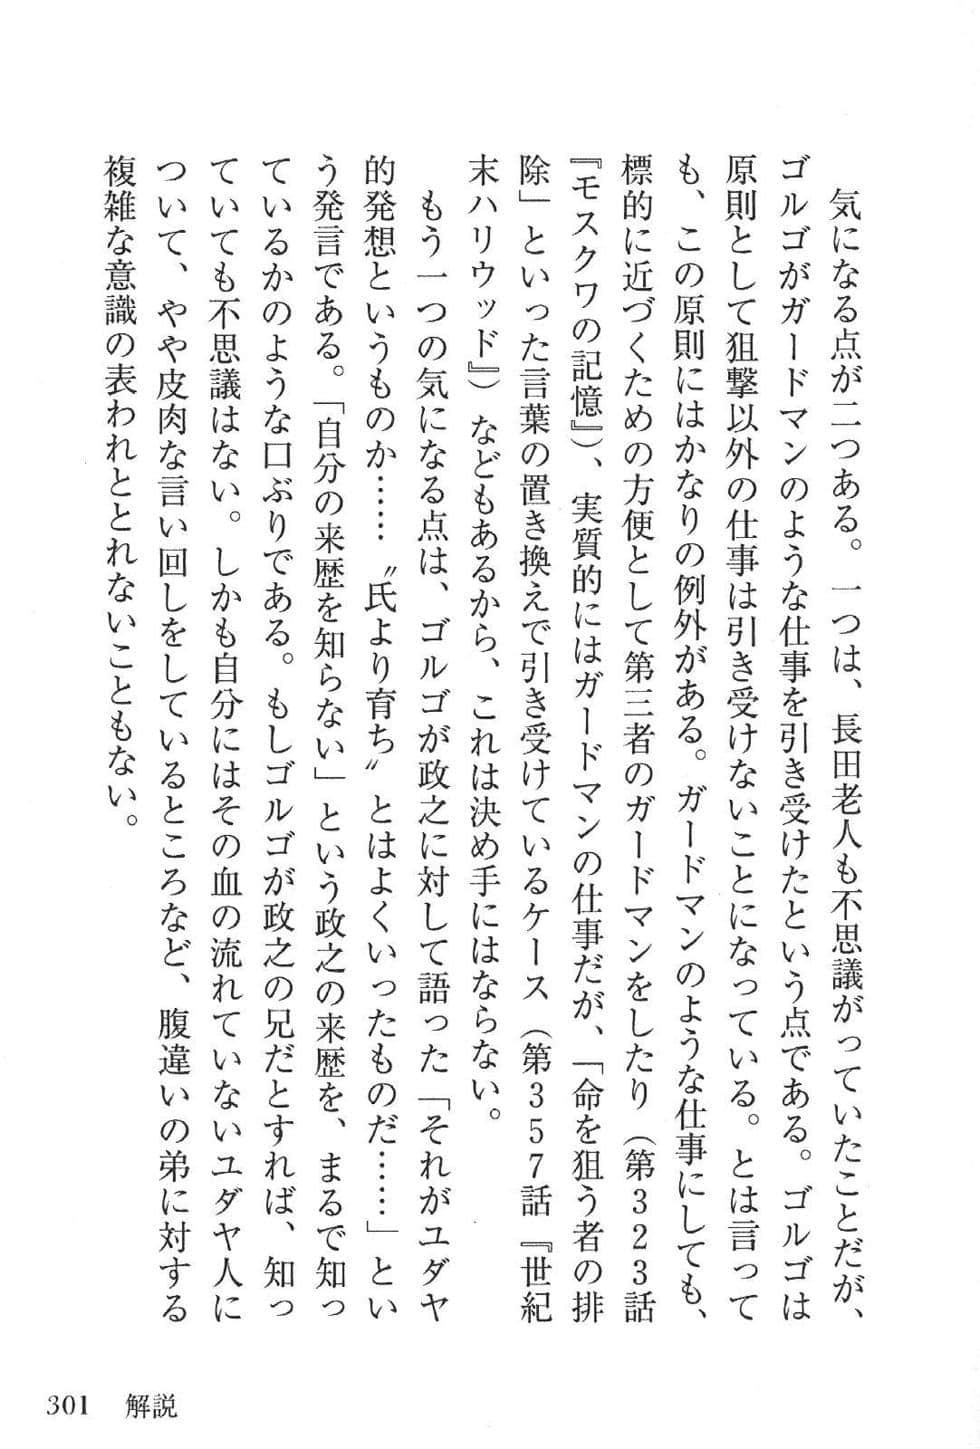 気になる点が二つある。一つは、長田老人も不思議がっていたことだが、
ゴルゴがガードマンのような仕事を引き受けたという点である。ゴルゴは
原則として狙撃以外の仕事は引き受けないことになっている。とは言って
も、この原則にはかなりの例外がある。ガードマンのような仕事にしても、
標的に近づくための方便として第三者のガードマンをしたり（第３２３話
『モスクワの記憶』）、実質的にはガードマンの仕事だが、「命を狙う者の排
除」といった言葉の置き換えで引き受けているケース（第３５７話『世紀
末ハリウッド』）などもあるから、これは決め手にはならない。
　もう一つの気になる点は、ゴルゴが政之に対して語った「それがユダヤ
的発想というものか……〝氏より育ち〟とはよくいったものだ……」とい
う発言である。「自分の来歴を知らない」という政之の来歴を、まるで知っ
ているかのような口ぶりである。もしゴルゴが政之の兄だとすれば、知っ
ていても不思議はない。しかも自分にはその血の流れていないユダヤ人に
ついて、やや皮肉な言い回しをしているところなど、腹違いの弟に対する
複雑な意識の表われととれないこともない。
301　解説